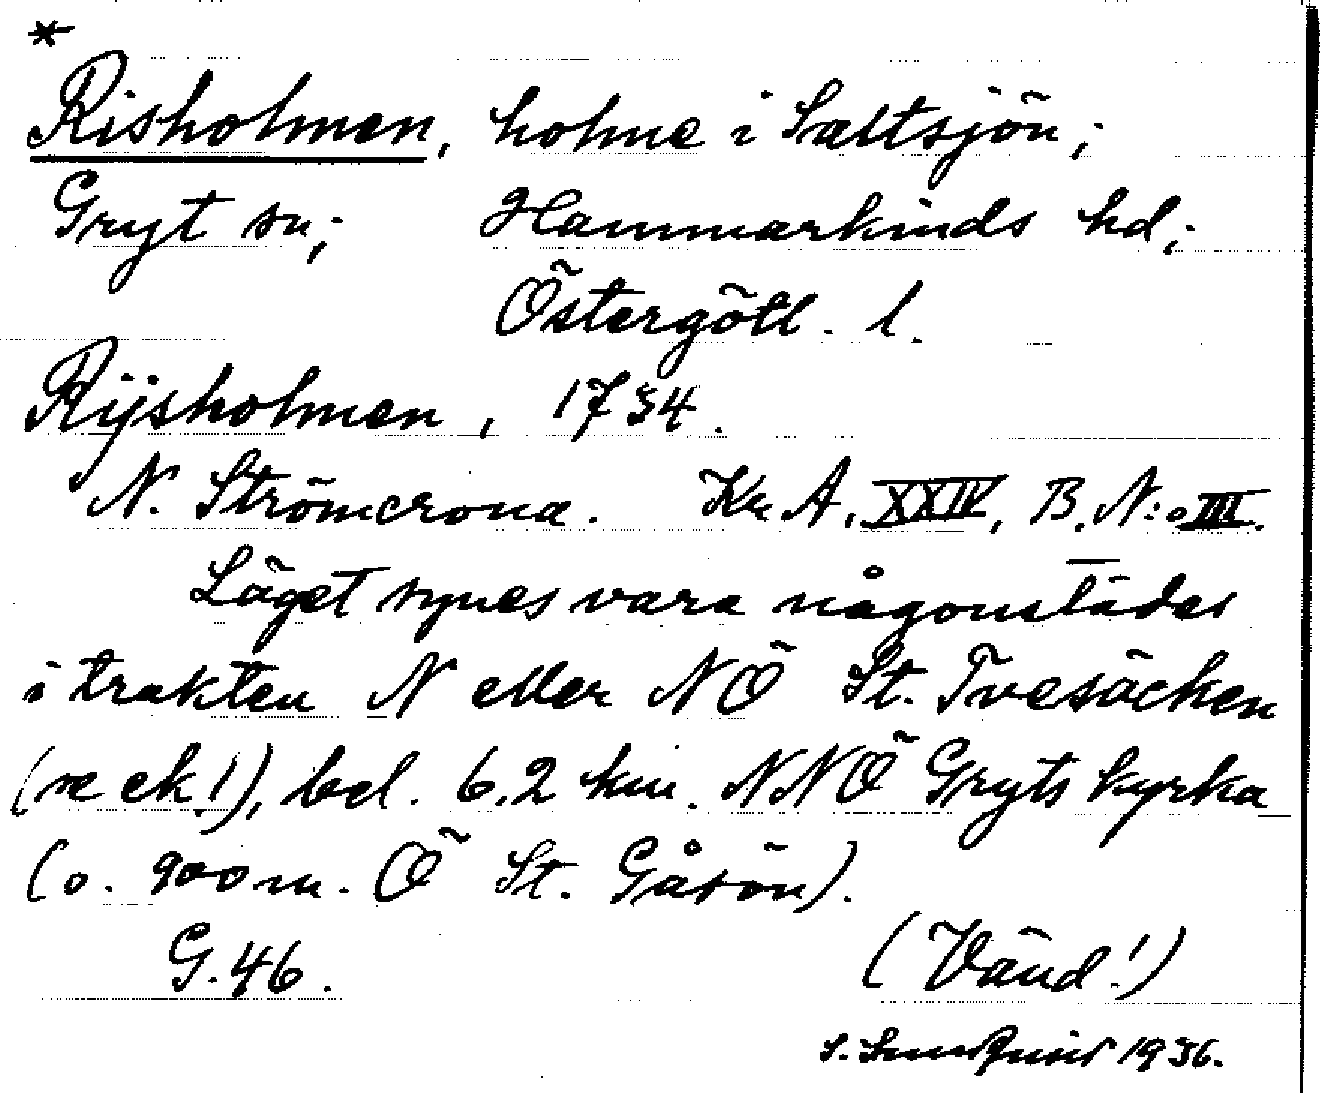 *
Risholmen, holme i Saltsjön;
Gryt sn; Hammarkinds hd;
Östergötl. l.
Rijsholmen, 1734.
N. Strömcrona. Kr A, XXIV, B. N:o III.
Läget synes vara någonstädes
i trakten N eller NÖ St. Tvesäcken
(se ek!), bel. 6,2 km. NNÖ Gryts kyrka
(o. 900 m. Ö St. Gåsön).
G. 46. (Vänd!)
S. 1936.